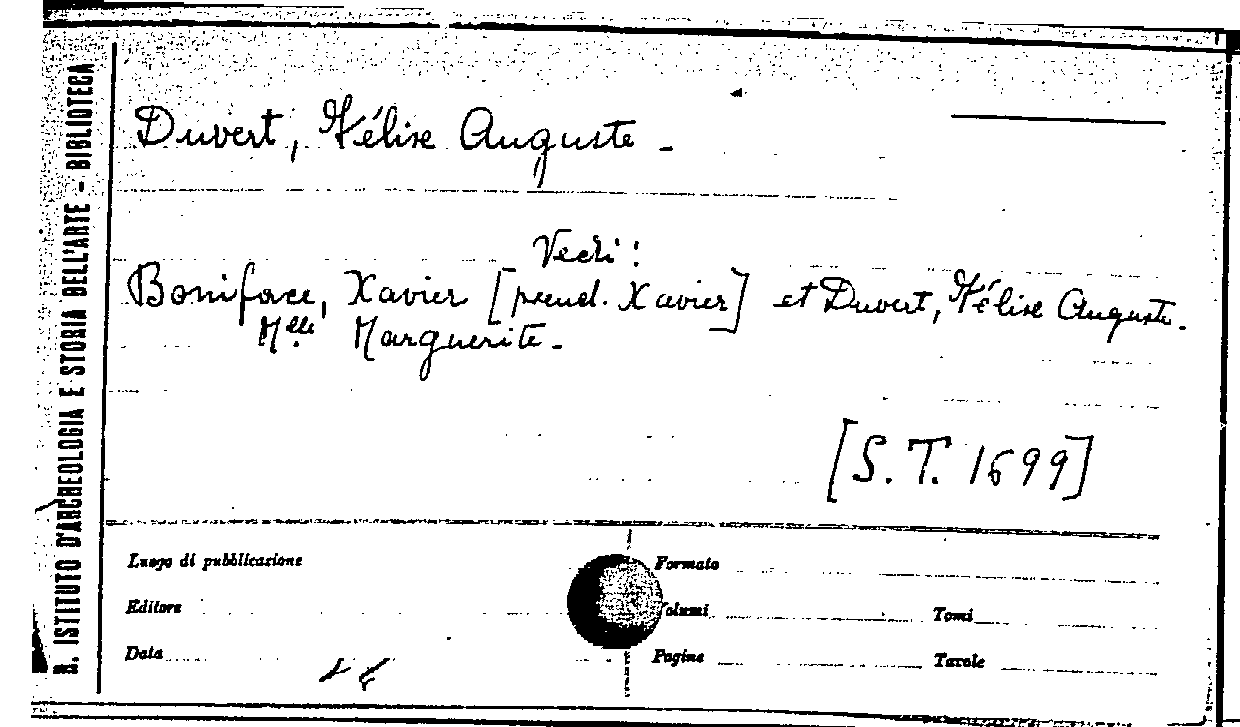 R. ISTITUTO D'ARCHEOLOGIA E STORIA DELL'ARTE - BIBLIOTECA
Duvert, Félix Auguste -
Vedi:
Boniface, Xavier [pseud. Xavier] et Duvert, Félix Auguste.
Mlle Marguerite. -
[S. T. 1699]
Luogo di pubblicazione
Formato
Editore
Volumi
Tomi
Data
Pagine
Tavole